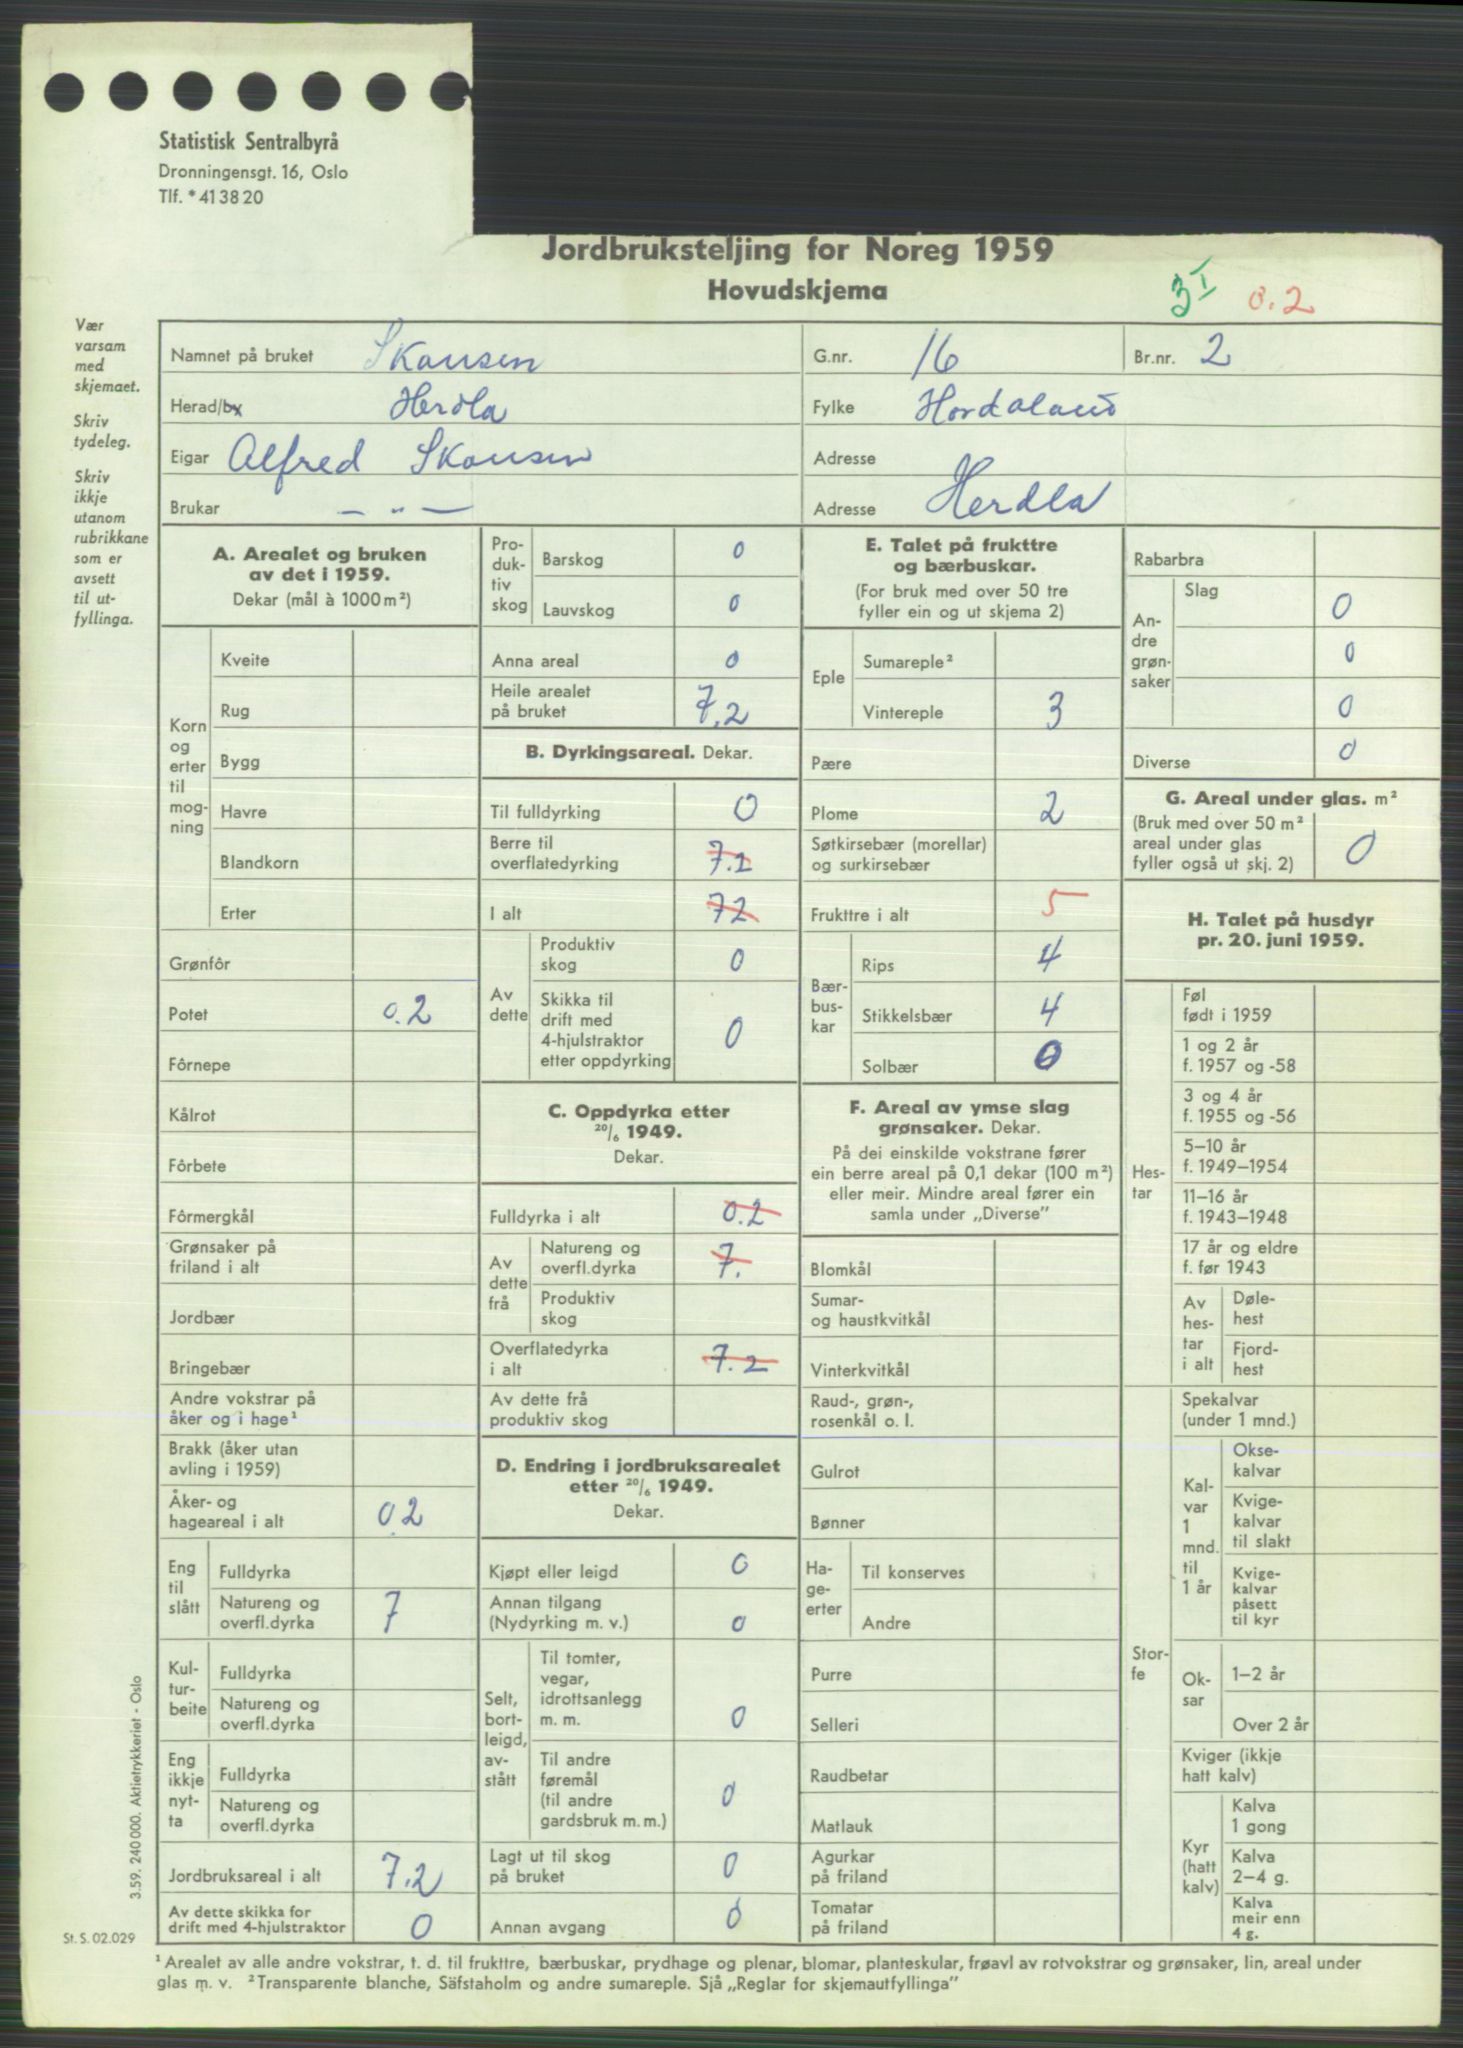 Statistisk Sentralbyrå
Dronningensgt. 16, Oslo
Tlf. * 41 38 20
Jordbruksteljing for Noreg 1959
Hovudskjema
3 I 0.2
Vær
varsam
med
skjemaet.
Skriv
tydeleg.
Skriv
ikkje
utanom
rubrikkane
som er
avsett
til ut-
fyllinga.
Namnet på bruket Skansen G.nr. 16 Br.nr. 2
Herad/bx Herdla Fylke Hordaland
Eigar Alfred Skansen Adresse
Brukar — " — Adresse Herdla
A. Arealet og bruken
av det i 1959.
Dekar (mål à 1000 m²)
Korn
og
erter
til
mog-
ning
Kveite
Rug
Bygg
Havre
Blandkorn
Erter
Grønfôr
Potet 0.2
Fôrnepe
Kålrot
Fôrbete
Fôrmergkål
Grønsaker på
friland i alt
Jordbær
Bringebær
Andre vokstrar på
åker og i hage¹
Brakk (åker utan
avling i 1959)
Åker- og
hageareal i alt 0.2
Eng
til
slått
Fulldyrka
Natureng og
overfl.dyrka 7
Kul-
tur-
beite
Fulldyrka
Natureng og
overfl.dyrka
Eng
ikkje
nyt-
ta
Fulldyrka
Natureng og
overfl.dyrka
Jordbruksareal i alt 7.2
Av dette skikka for
drift med 4-hjulstraktor 0
Pro-
duk-
tiv
skog
Barskog 0
Lauvskog 0
Anna areal 0
Heile arealet
på bruket 7.2
B. Dyrkingsareal. Dekar.
Til fulldyrking 0
Berre til
overflatedyrking 7.2
I alt 72
Av
dette
Produktiv
skog 0
Skikka til
drift med
4-hjulstraktor
etter oppdyrking 0
C. Oppdyrka etter
20/6 1949.
Dekar.
Fulldyrka i alt 0.2
Av
dette
frå
Natureng og
overfl.dyrka 7.
Produktiv
skog
Overflatedyrka
i alt 7.2
Av dette frå
produktiv skog
D. Endring i jordbruksarealet
etter 20/6 1949.
Dekar.
Kjøpt eller leigd 0
Annan tilgang
(Nydyrking m. v.) 0
Selt,
bort-
leigd,
av-
stått
Til tomter,
vegar,
idrottsanlegg
m. m. 0
Til andre
føremål
(til andre
gardsbruk m. m.) 0
Lagt ut til skog
på bruket 0
Annan avgang 0
E. Talet på frukttre
og bærbuskar.
(For bruk med over 50 tre
fyller ein og ut skjema 2)
Eple
Sumareple²
Vintereple 3
Pære
Plome 2
Søtkirsebær (morellar)
og surkirsebær
Frukttre i alt 5
Bær-
bus-
kar
Rips 4
Stikkelsbær 4
Solbær 0
F. Areal av ymse slag
grønsaker. Dekar.
På dei einskilde vokstrane fører
ein berre areal på 0,1 dekar (100 m²)
eller meir. Mindre areal fører ein
samla under „Diverse”
Blomkål
Sumar-
og haustkvitkål
Vinterkvitkål
Raud-, grøn-,
rosenkål o. l.
Gulrot
Bønner
Ha-
ge-
erter
Til konserves
Andre
Purre
Selleri
Raudbetar
Matlauk
Agurkar
på friland
Tomatar
på friland
Rabarbra
An-
dre
grøn-
saker
Slag
0
0
0
Diverse 0
G. Areal under glas. m²
(Bruk med over 50 m²
areal under glas
fyller også ut skj. 2) 0
H. Talet på husdyr
pr. 20. juni 1959.
Hes-
tar
Føl
født i 1959
1 og 2 år
f. 1957 og -58
3 og 4 år
f. 1955 og -56
5–10 år
f. 1949–1954
11–16 år
f. 1943–1948
17 år og eldre
f. før 1943
Av
hes-
tar
i alt
Døle-
hest
Fjord-
hest
Stor-
fe
Spekalvar
(under 1 mnd.)
Kal-
var
1
mnd.
til
1 år
Okse-
kalvar
Kvige-
kalvar
til slakt
Kvige-
kalvar
påsett
til kyr
Ok-
sar
1–2 år
Over 2 år
Kviger (ikkje
hatt kalv)
Kyr
(hatt
kalv)
Kalva
1 gong
Kalva
2–4 g.
Kalva
meir enn
4 g.
3.59. 240 000. Aktietrykkeriet - Oslo
St. S. 02.029
¹ Arealet av alle andre vokstrar, t. d. til frukttre, bærbuskar, prydhage og plenar, blomar, planteskular, frøavl av rotvokstrar og grønsaker, lin, areal under
glas m. v. ² Transparente blanche, Säfstaholm og andre sumareple. Sjå „Reglar for skjemautfyllinga”